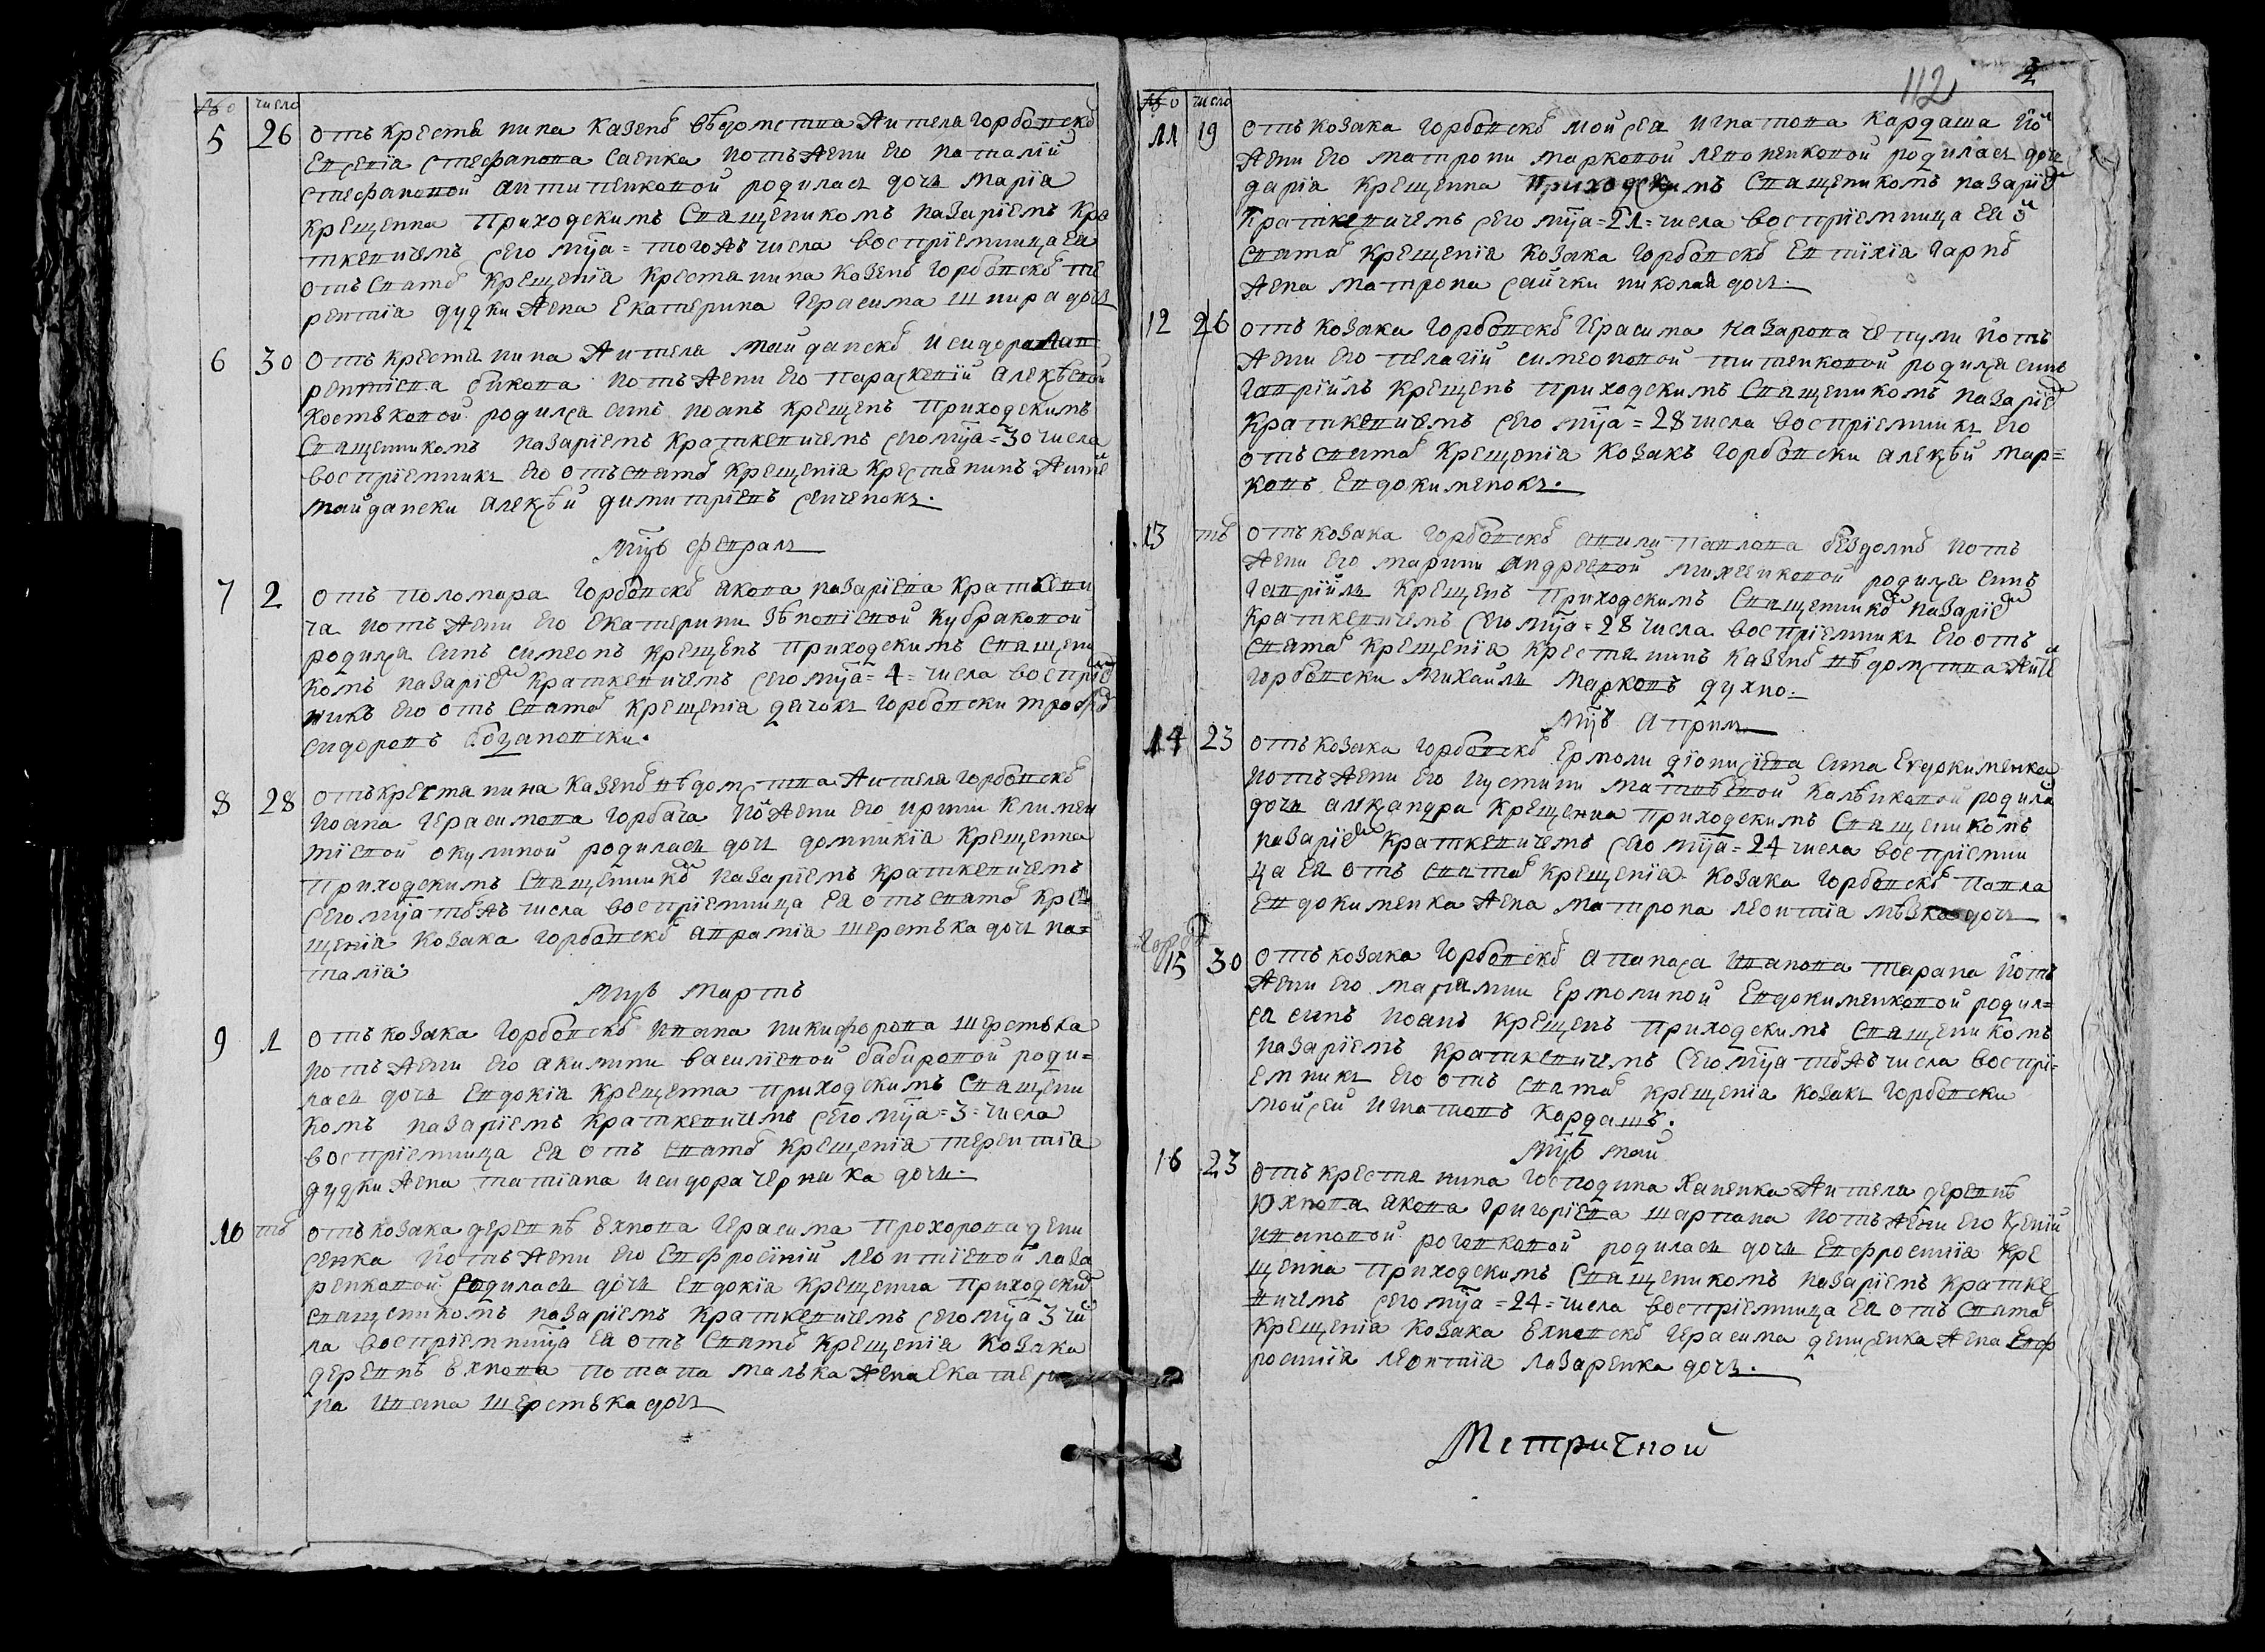 №о число
5 26 отъ крестянина казенъ вѣдомства жителя Горбовскъ
Евсевія Стефанова Саенка ио отъ жени его Наталіи
Стефановой Антипенковой родилась дочь Марія
крещенна приходскимъ священикомъ Назаріемъ Кра
ткевичемъ сего мца = тогожъ числа воспріемница ея
отъ святъ крещенія крестянина козенъ Горбовскъ те
рентія Дудки жена Екатерина Герасима Шпира дочь
6 30 отъ крестянина жителя майданскъ Исидора Лав
рентіева Бикова иотъ жени его Параскевіи Алексѣевой
Костюковой родился синъ Иоанъ крещенъ приходскимъ
священникомъ Назаріемъ Краткевичемъ сего мца = 30 числа
воспріемникъ его отъ святъ крещенія крестянинъ жите
майдански Алексѣй Димитріевъ Сенченокъ.
мцъ февраль
7 2 отъ поломара Горбовскъ Якова Назаріева Краткеви
ча иотъ жени его Екатерини Зѣновіевой Кубраковой
родился синъ Симеонъ крещенъ приходскимъ священи
комъ Назаріе Краткевичемъ сего мца = 4 = числа воспріе
никъ его отъ святъ крещенія дячокъ Горбовски
Сидоровъ
8 28 отъ крестянина казенъ вѣдомства жителя Горбовскъ
Иоана Герасимова Горбача ио жени его Ирини Климен
тіевой Окулиной родилась дочь Домникія крещенна
приходскимъ священникъ Назаріемъ Краткевичемъ
сего мца тъжъ числа воспріемница ея отъ святъ кре
щенія козака Горбовскъ Аврамія Шерстюка дочь На=
талія.
мцъ Мартъ
9 1 отъ козака Горбовскъ Ивана Никифорова Шерстюка
иотъ жени его Акилини Василіевой Бабировой роди=
лась дочь Евдокія крещенна приходскимъ священи
комъ Назаріемъ Краткевичемъ сего мца = 3 = числа
воспріемница ея отъ святъ крещенія Терентія
Дудки жена Татіана Исидора Черника дочь.
10 тъ отъ козака деревнѣ Юхнова Герасима Прохорова Дени
сенка иотъ жени его Евфросиніи Леонтіевой Лаза
ренковой родилась дочь Евдокія крещенна приходски
священикомъ Назаріемъ Краткевичемъ сего мца 3 чи
ла воспріемница ея отъ святъ крещенія козака
деревнѣ Юхнова Потапа Малька жена Екатери
на Ивана Шерстюка дочь
112 2
№о число
11 19 отъ козака Горбовскъ Мойсея Игнатова Кардаша ио
жени его Матрони Марковой Левоненковой родилась дочь
Дарія крещенна приходскимъ священикомъ Назаріе
Краткевичемъ сего мца = 21 = числа воспріемница ея о
святъ крещенія козака Горбовскъ Евтихія
жена Матрона Сайчки Николая дочь.
12 26 отъ козака Горбовскъ Герасима Назарова Чепули иотъ
жени его Пелагіи Симеоновой Титенковой родился синъ
Гавріилъ крещенъ приходскимъ священикомъ Назаріе
Краткевичемъ сего мца = 28 числа воспріемникъ его
отъ святъ крещенія козакъ Горбовски Алексѣй Мар=
ковъ Евдокименокъ.
13 тъ отъ козака Горбовскъ Павлова Бездолнъ иотъ
жени его Марини Андреевой Михненковой родился синъ
Гавріилъ крещенъ приходскимъ священникъ Назаріе
Краткевичемъ сего мца = 28 числа воспріемникъ его отъ
святъ крещенія крестянинъ казенъ вѣдомства жите
Горбовски Михаилъ Марковъ Духно.
мцъ априль
14 23 отъ козака Горбовскъ Ермоли Діонисіева сина Евдокименка
иотъ жени его Иустини Матвѣевой Калѣниковой родила
дочь Александра крещенна приходскимъ священикомъ
Назаріе Краткевичемъ сего мца = 24 числа воспріемни
ца ея отъ святъ крещенія козака Горбовскъ Павла
Евдокименка жена Матрона Леонтія дочь
15 30 отъ козака Горбовскъ Апанаса Иванова Тарана иотъ
жени его Маріамни Ермолиной Евдокименковой родил=
ся синъ Иоанъ крещенъ приходскимъ священикомъ
Назаріемъ Краткевичемъ сего мца тъжъ числа воспрі=
емникъ его отъ святъ крещенія козакъ Горбовски
Мойсей Игнатовъ Кардашъ.
мцъ май
16 23 отъ крестянина господина Ханенка жителя деревнѣ
Юхнова Якова Григоріева Шарпана иотъ жени его Ксеніи
Ивановой родилась дочь Евфросинія кре
щенна приходскимъ священикомъ Назаріемъ Кратке
вичемъ сего мца = 24 = числа воспріемница ея отъ святъ
крещенія козака Юхновскъ Герасима Денисенка жена Евф
росинія Леонтія Лазаренка дочь.
Метричной